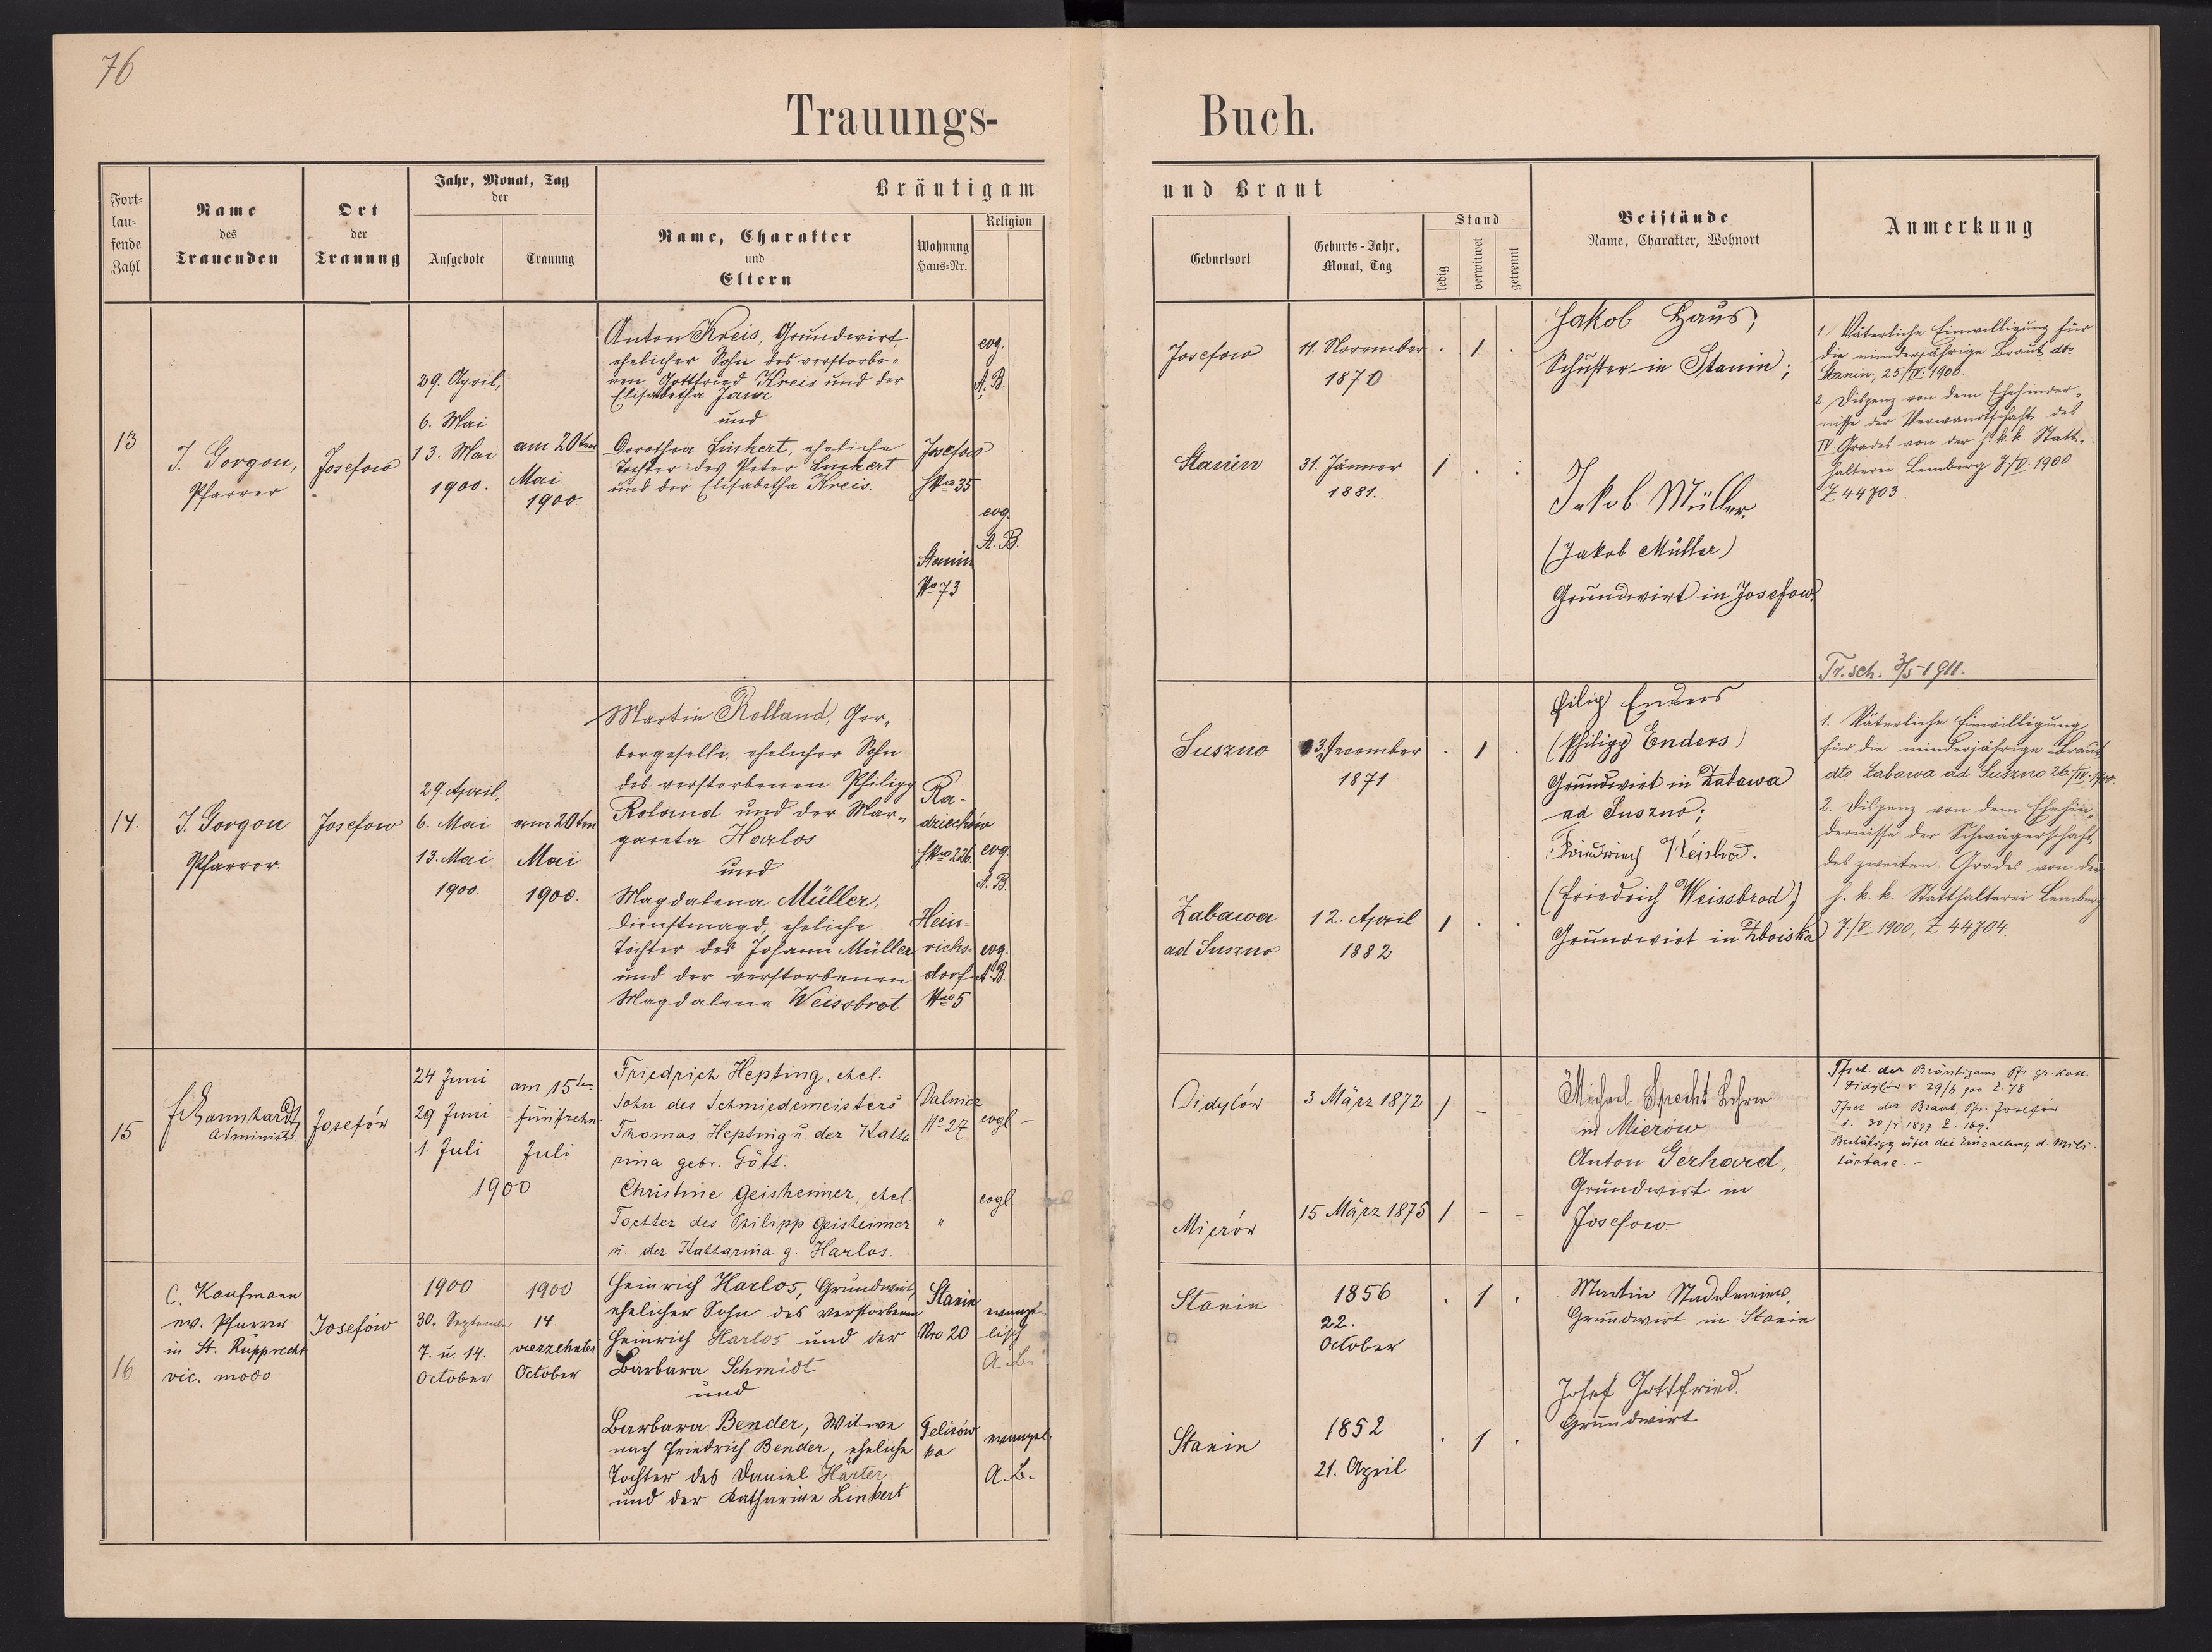 76
Trauungs-
Buch.
Fort-
lau-
fende
Zahl
Name
des
Trauenden
Ort
der
Trauung
Jahr, Monat, Tag
der
Aufgebote
Trauung
Bräutigam
Name, Charakter
und
Eltern
Wohnung
Haus-Nr.
Religion
und Braut
Geburtsort
Geburts-Jahr,
Monat, Tag
Stand
ledig
verwitwet
getrennt
Beistände
Name, Charakter, Wohnort
Anmerkung
13
J. Gorgon,
Pfarrer
Josefow
29. April,
6. Mai
13. Mai
1900.
am 20ten
Mai
1900.
Anton Kreis, Grundwirt,
ehelicher Sohn des verstorbe-
nen Gottfried Kreis und der
Elisabetha Janz
und
Dorothea Linkert, eheliche
Tochter des Peter Linkert
und der Elisabetha Kreis.
Josefow
35
Stanin
No 73
evg.
A. B.
evg.
A. B.
Josefow
11. November
1870
. 1 .
Stanin
31. Jänner
1881.
1 . .
Jakob Haus,
Schuster in Stanin;
Jakob Müller
(Jakob Müller)
Grundwirt in Josefow.
1. Väterliche Einwilligung für
die minderjährige Braut dto
Stanin, 25/IV. 1900
2. Dispenz von dem Ehehinder-
nisse der Verwandtschaft des
IV Grades von der h. k. k. Statt-
halterei Lemberg 7/V. 1900
Z 44703.
Tr. sch. 3/5 1911.
14.
J. Gorgon
Pfarrer.
Josefow
29. April,
6. Mai
13. Mai
1900.
am 20ten
Mai
1900.
Martin Rolland, Ger-
bergeselle, ehelicher Sohn
des verstorbenen Philipp
Roland und der Mar-
gareta Harlos
und
Magdalena Müller,
Dienstmagd, eheliche
Tochter des Johann Müller
und der verstorbenen
Magdalena Weissbrot
Ra-
dziechów
226.
Hein-
richs-
dorf
Nro 5
evg.
A. B.
evg.
A. B.
Suszno
3. Dezember
1871
. 1 .
Zabawa
ad Suszno
12. April
1882
1 . .
Filip Enders
(Philipp Enders)
Grundwirt in Zabawa
ad Suszno;
(Friedrich Weissbrod)
Grundwirt in Zboiska
1. Väterliche Einwilligung
für die minderjährige Braut
dto Zabawa ad Suszno 26/IV. 1900.
2. Dispenz von dem Ehehin-
dernisse der Schwägerschaft
des zweiten Grades von der
h. k. k. Statthalterei Lemberg
7/V 1900, Z 44704.
15
Administr.
Josefów
24 Juni
29 Juni
1. Juli
1900
am 15ten
- fünfzehn-
Juli
Friedrich Hepting, ehel.
Sohn des Schmiedemeisters
Thomas Hepting u. der Katha
rina gebr. Gött.
Christine Geisheimer, ehel.
Tochter des Philipp Geisheimer
u. der Katharina g. Harlos.
No 27
"
evgl -
evgl.
Didylów
3 März 1872
1 - -
Mierów
15 März 1875
1 - -
Michael Specht Lehrer
in Mierow
Anton Gerhard,
Grundwirt in
Josefow.
Tfsch. des Bräutigams Pfr. gr. kath.
Didylów v. 29/6 900 Z. 78
Tfsch der Braut Pfr. Josefów
d. 30/1 1897 Z. 169.
Bestätigg über die Einzahlung d. Mili-
tärtaxe. -
16
C. Kaufmann
ev. Pfarrer
in St. Rupprecht
vic. modo
Josefów
1900
30. September
7. u. 14.
October
1900
14.
vierzehnter
October
Heinrich Harlos, Grundwirt,
ehelicher Sohn des verstorbenen
Heinrich Harlos und der
Barbara Schmidt
und
Barbara Bender, Witwe
nach Friedrich Bender, eheliche
Tochter des Daniel Härter
und der Katharina Linkert
Stanin
Nro 20
Felizów
ka
evange-
lisch
A. B.
evangel.
A. B.
Stanin
1856
22.
October
. 1 .
Stanin
1852
21. April
. 1 .
Martin Stadelmeier,
Grundwirt in Stanin
Josef Gottfried.
Grundwirt